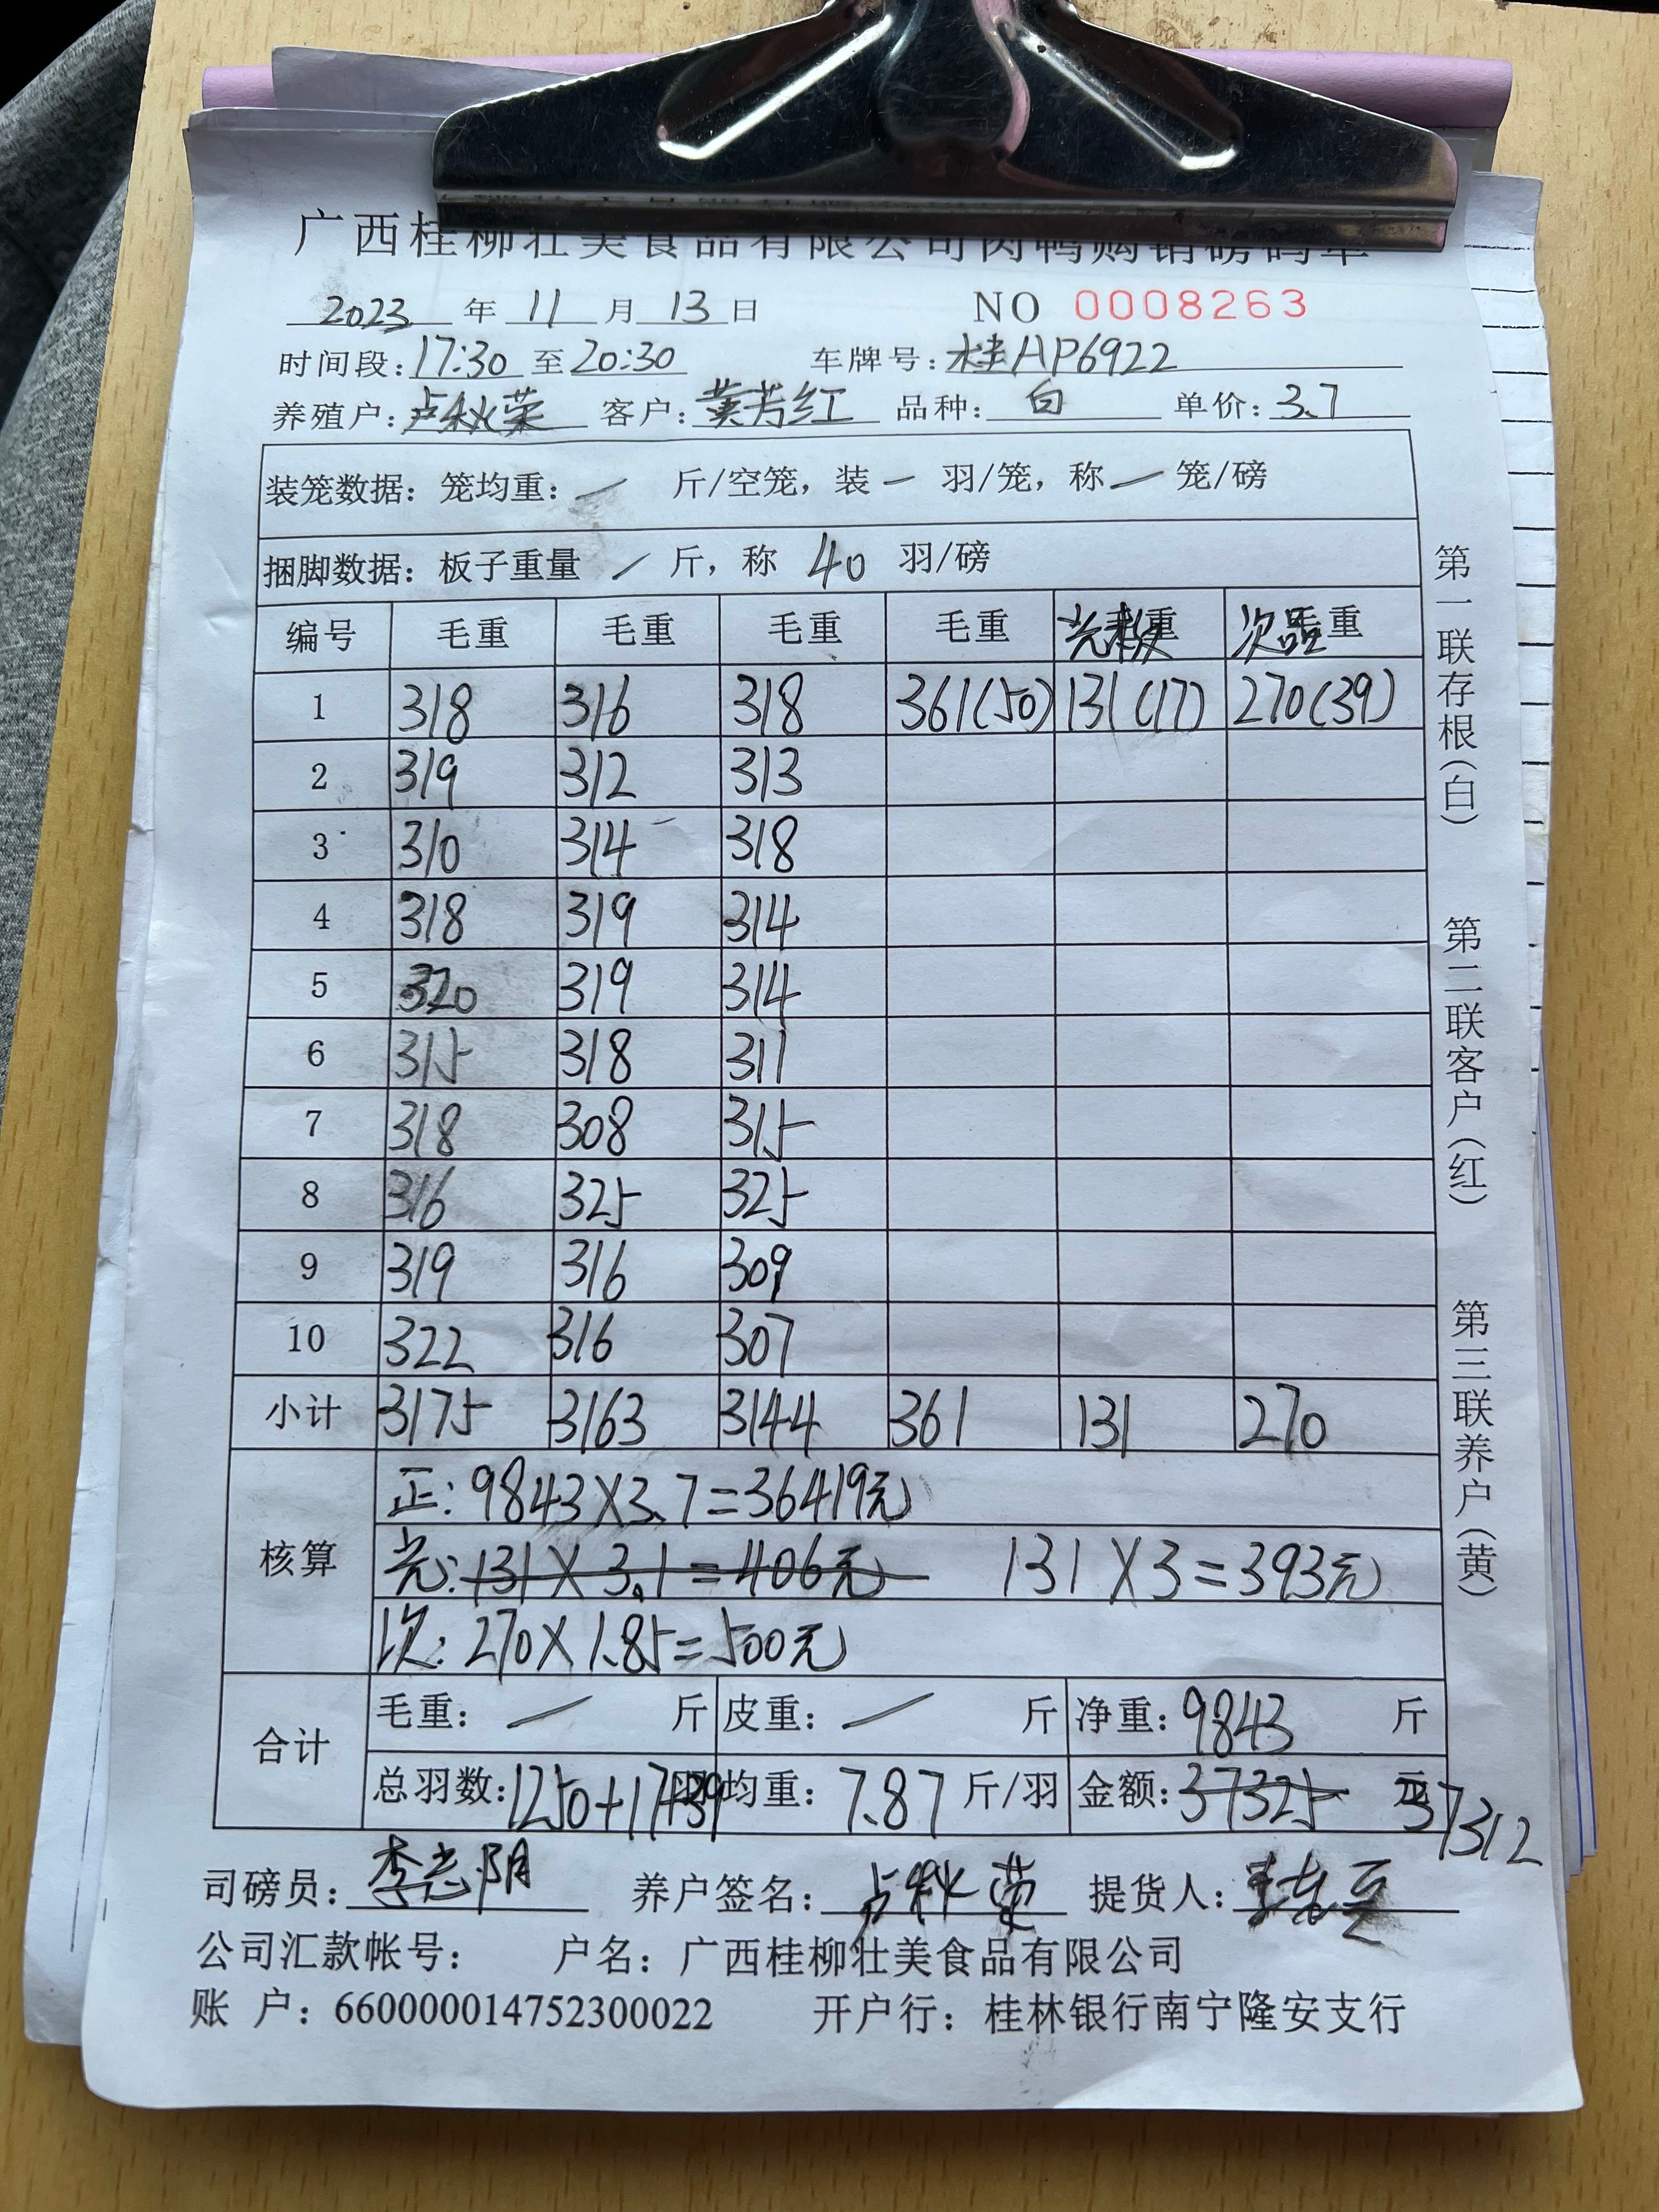 广西桂柳壮美食品有限公司肉鸭购销磅码单
2023 年 11 月 13 日 NO 0008263
时间段:17:30 至 20:30 车牌号:桂AP6922
养殖户:卢秋荣 客户:黄芳红 品种: 白 单价:3.7
装笼数据: 笼均重: / 斤/空笼, 装 一 羽/笼, 称 一 笼/磅
捆脚数据: 板子重量 / 斤, 称 40 羽/磅
编号 毛重 毛重 毛重 毛重 毛重 次品 毛重
1 318 316 318 361(50) 131(17) 270(39)
2 319 312 313
3 310 314 318
4 318 319 314
5 320 319 314
6 315 318 311
7 318 308 315
8 316 325 325
9 319 316 309
10 322 316 307
小计 3175 3163 3144 361 131 270
核算
正: 9843×3.7=36419元
光: 131×3.1=406元 131×3=393元
次: 270×1.85=500元
合计
毛重: / 斤 皮重: / 斤 净重: 9843 斤
总羽数: 1250+17+39 羽 均重: 7.87 斤/羽 金额: 37325 元 37312
司磅员: 李志阴 养户签名: 卢秋荣 提货人:
公司汇款帐号: 户名: 广西桂柳壮美食品有限公司
账 户: 660000014752300022 开户行: 桂林银行南宁隆安支行
第一联存根(白)
第二联客户(红)
第三联养户(黄)